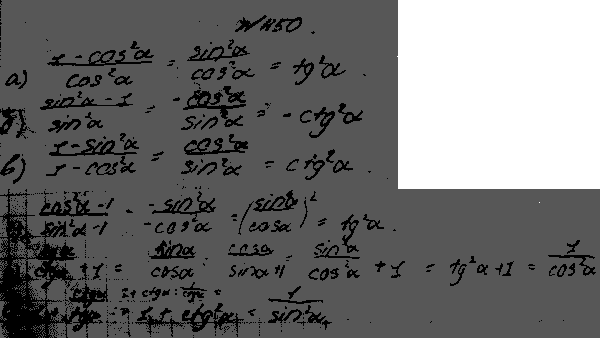 N 1150.
а) (1 - cos²α)/(cos²α) = (sin²α)/(cos²α) = tg²α.
б) (sin²α - 1)/(sin²α) = (-cos²α)/(sin²α) = -ctg²α
в) (1 - sin²α)/(1 - cos²α) = (cos²α)/(sin²α) = ctg²α.
(cos²α - 1)/(sin²α - 1) = (-sin²α)/(-cos²α) = (sinα/cosα)² = tg²α.
+ 1 = (sinα)/(cosα) : (cosα)/(sinα) + 1 = (sin²α)/(cos²α) + 1 = tg²α + 1 = 1/(cos²α)
= 1 + ctg²α = 1/(sin²α).